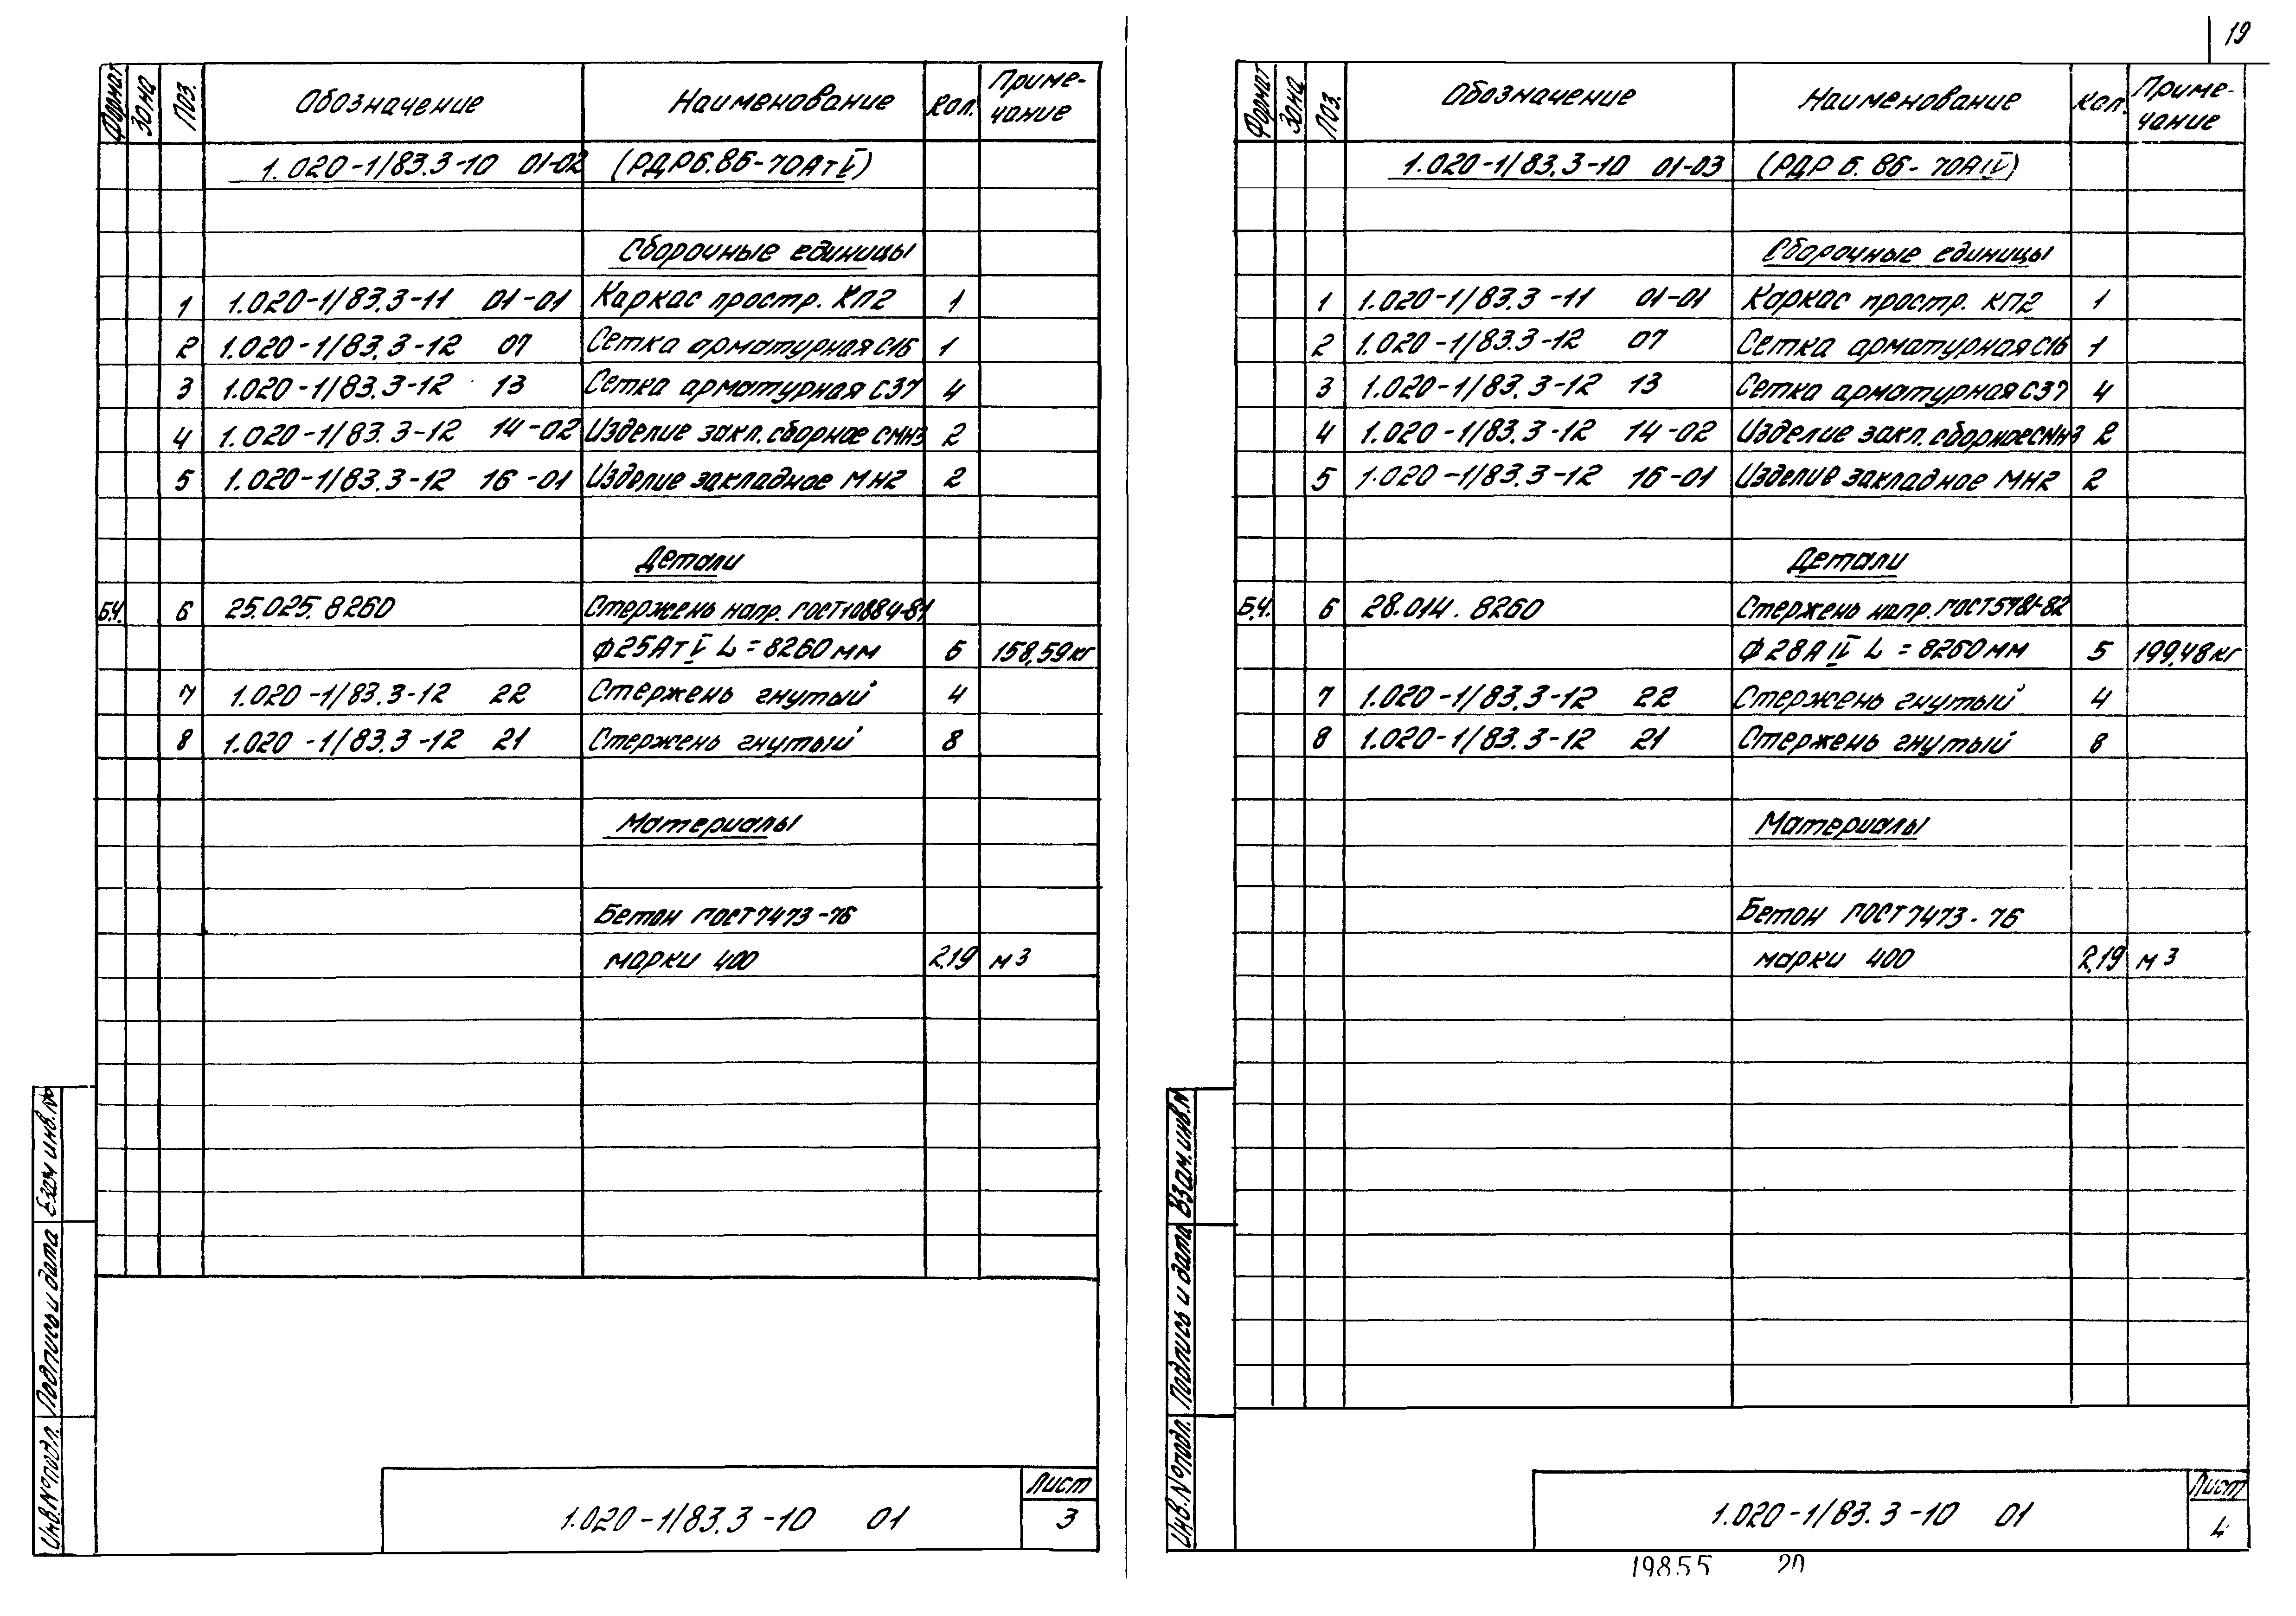 19
Формат Зона Поз. Обозначение Наименование Кол. Приме-
чание
1.020-1/83.3-10 01-02 (РДР6.86-70АтV)
Сборочные единицы
1 1.020-1/83.3-11 01-01 Каркас простр. КП2 1
2 1.020-1/83.3-12 07 Сетка арматурная С16 1
3 1.020-1/83.3-12 13 Сетка арматурная С37 4
4 1.020-1/83.3-12 14-02 Изделие закл. сборное СМН3 2
5 1.020-1/83.3-12 16-01 Изделие закладное МН2 2
Детали
Б.Ч. 6 25.025.8260 Стержень напр. ГОСТ10884-81
Ф25АтV L=8260мм 5 158,59кг
7 1.020-1/83.3-12 22 Стержень гнутый 4
8 1.020-1/83.3-12 21 Стержень гнутый 8
Материалы
Бетон ГОСТ7473-76
марки 400 2,19 м3
Инв.№подл. Подпись и дата Взам инв.№
1.020-1/83.3-10 01
Лист
3
Формат Зона Поз. Обозначение Наименование Кол. Приме-
чание
1.020-1/83.3-10 01-03 (РДР 6.86-70АIV)
Сборочные единицы
1 1.020-1/83.3-11 01-01 Каркас простр. КП2 1
2 1.020-1/83.3-12 07 Сетка арматурная С16 1
3 1.020-1/83.3-12 13 Сетка арматурная С37 4
4 1.020-1/83.3-12 14-02 Изделие закл. сборное СМН3 2
5 1.020-1/83.3-12 16-01 Изделие закладное МН2 2
Детали
Б.Ч. 6 28.014.8260 Стержень напр. ГОСТ5781-82
Ф28АIV L=8260мм 5 199,48кг
7 1.020-1/83.3-12 22 Стержень гнутый 4
8 1.020-1/83.3-12 21 Стержень гнутый 8
Материалы
Бетон ГОСТ7473-76
марки 400 2,19 м3
Инв.№подл. Подпись и дата Взам.инв.№
1.020-1/83.3-10 01
Лист
4
19855 20